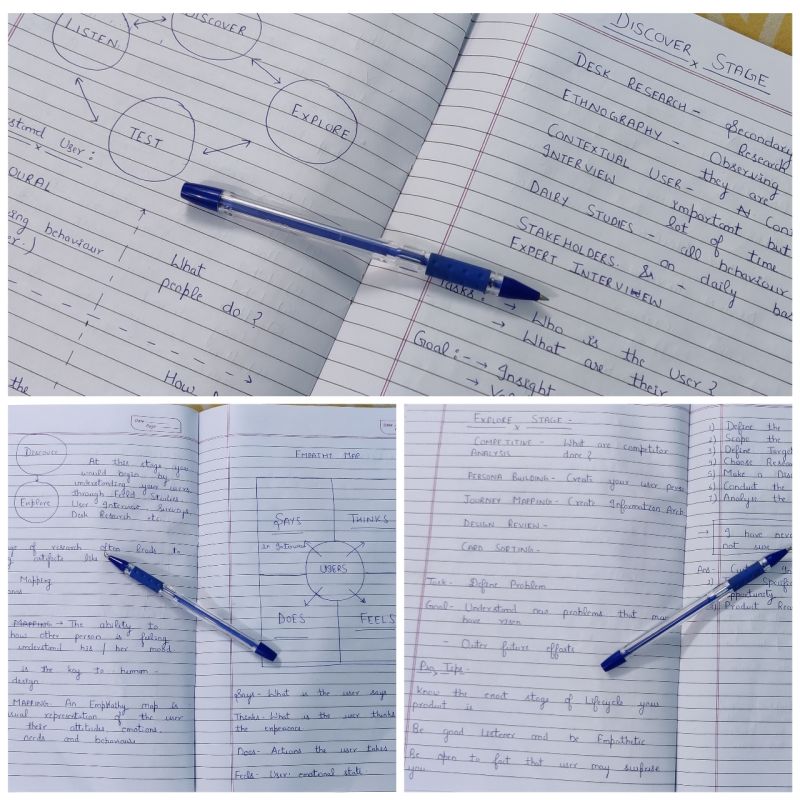 LISTEN
DISCOVER
EXPLORE
TEST
User:
OURAL
behaviour
What
people do?
How
the
DISCOVER STAGE
DESK RESEARCH - Secondary
Research
ETHNOGRAPHY - Observing
they are
CONTEXTUAL USER -
INTERVIEW important but
lot of time
DAIRY STUDIES - all behaviour
on daily bas
STAKEHOLDERS &
EXPERT INTERVIEW
Tasks: → Who is the User?
→ What are their
Goal:- → Insight
Discover
At this stage you
would begin by
understanding your users
through Field Studies
User Interview, Surveys,
Desk Research etc.
Explore
of research often leads to
artifacts like
Mapping
MAPPING → The ability to
how other person is feeling
understand his / her mood
is the key to human
design
MAPPING: An Empathy map is
representation of the user
their attitudes, emotions,
needs and behaviour
EMPATHY MAP
SAYS
THINKS
in Interview
USERS
DOES
FEELS
Says - What is the user says
Thinks - What is the user thinks
the experience
Does - Actions the user takes
Feels - User: emotional state
EXPLORE STAGE -
COMPETITIVE - What are competitor
ANALYSIS done?
PERSONA BUILDING - Create your user
JOURNEY MAPPING - Create Information Arch
DESIGN REVIEW -
CARD SORTING -
Task - Define Problem
Goal - Understand new problems that may
have risen
- Outer future efforts
Pro Tips -
Know the exact stage of Lifecycle your
product is
Be good Listener and be Empathetic
Be open to fact that user may surprise
you.
1) Define the
2) Scope the
3) Define Target
4) Choose
5) Make a
6) Conduct the
7) Analyse the
→ I have never
not sure
Ans:
Specific
opportunity
Product